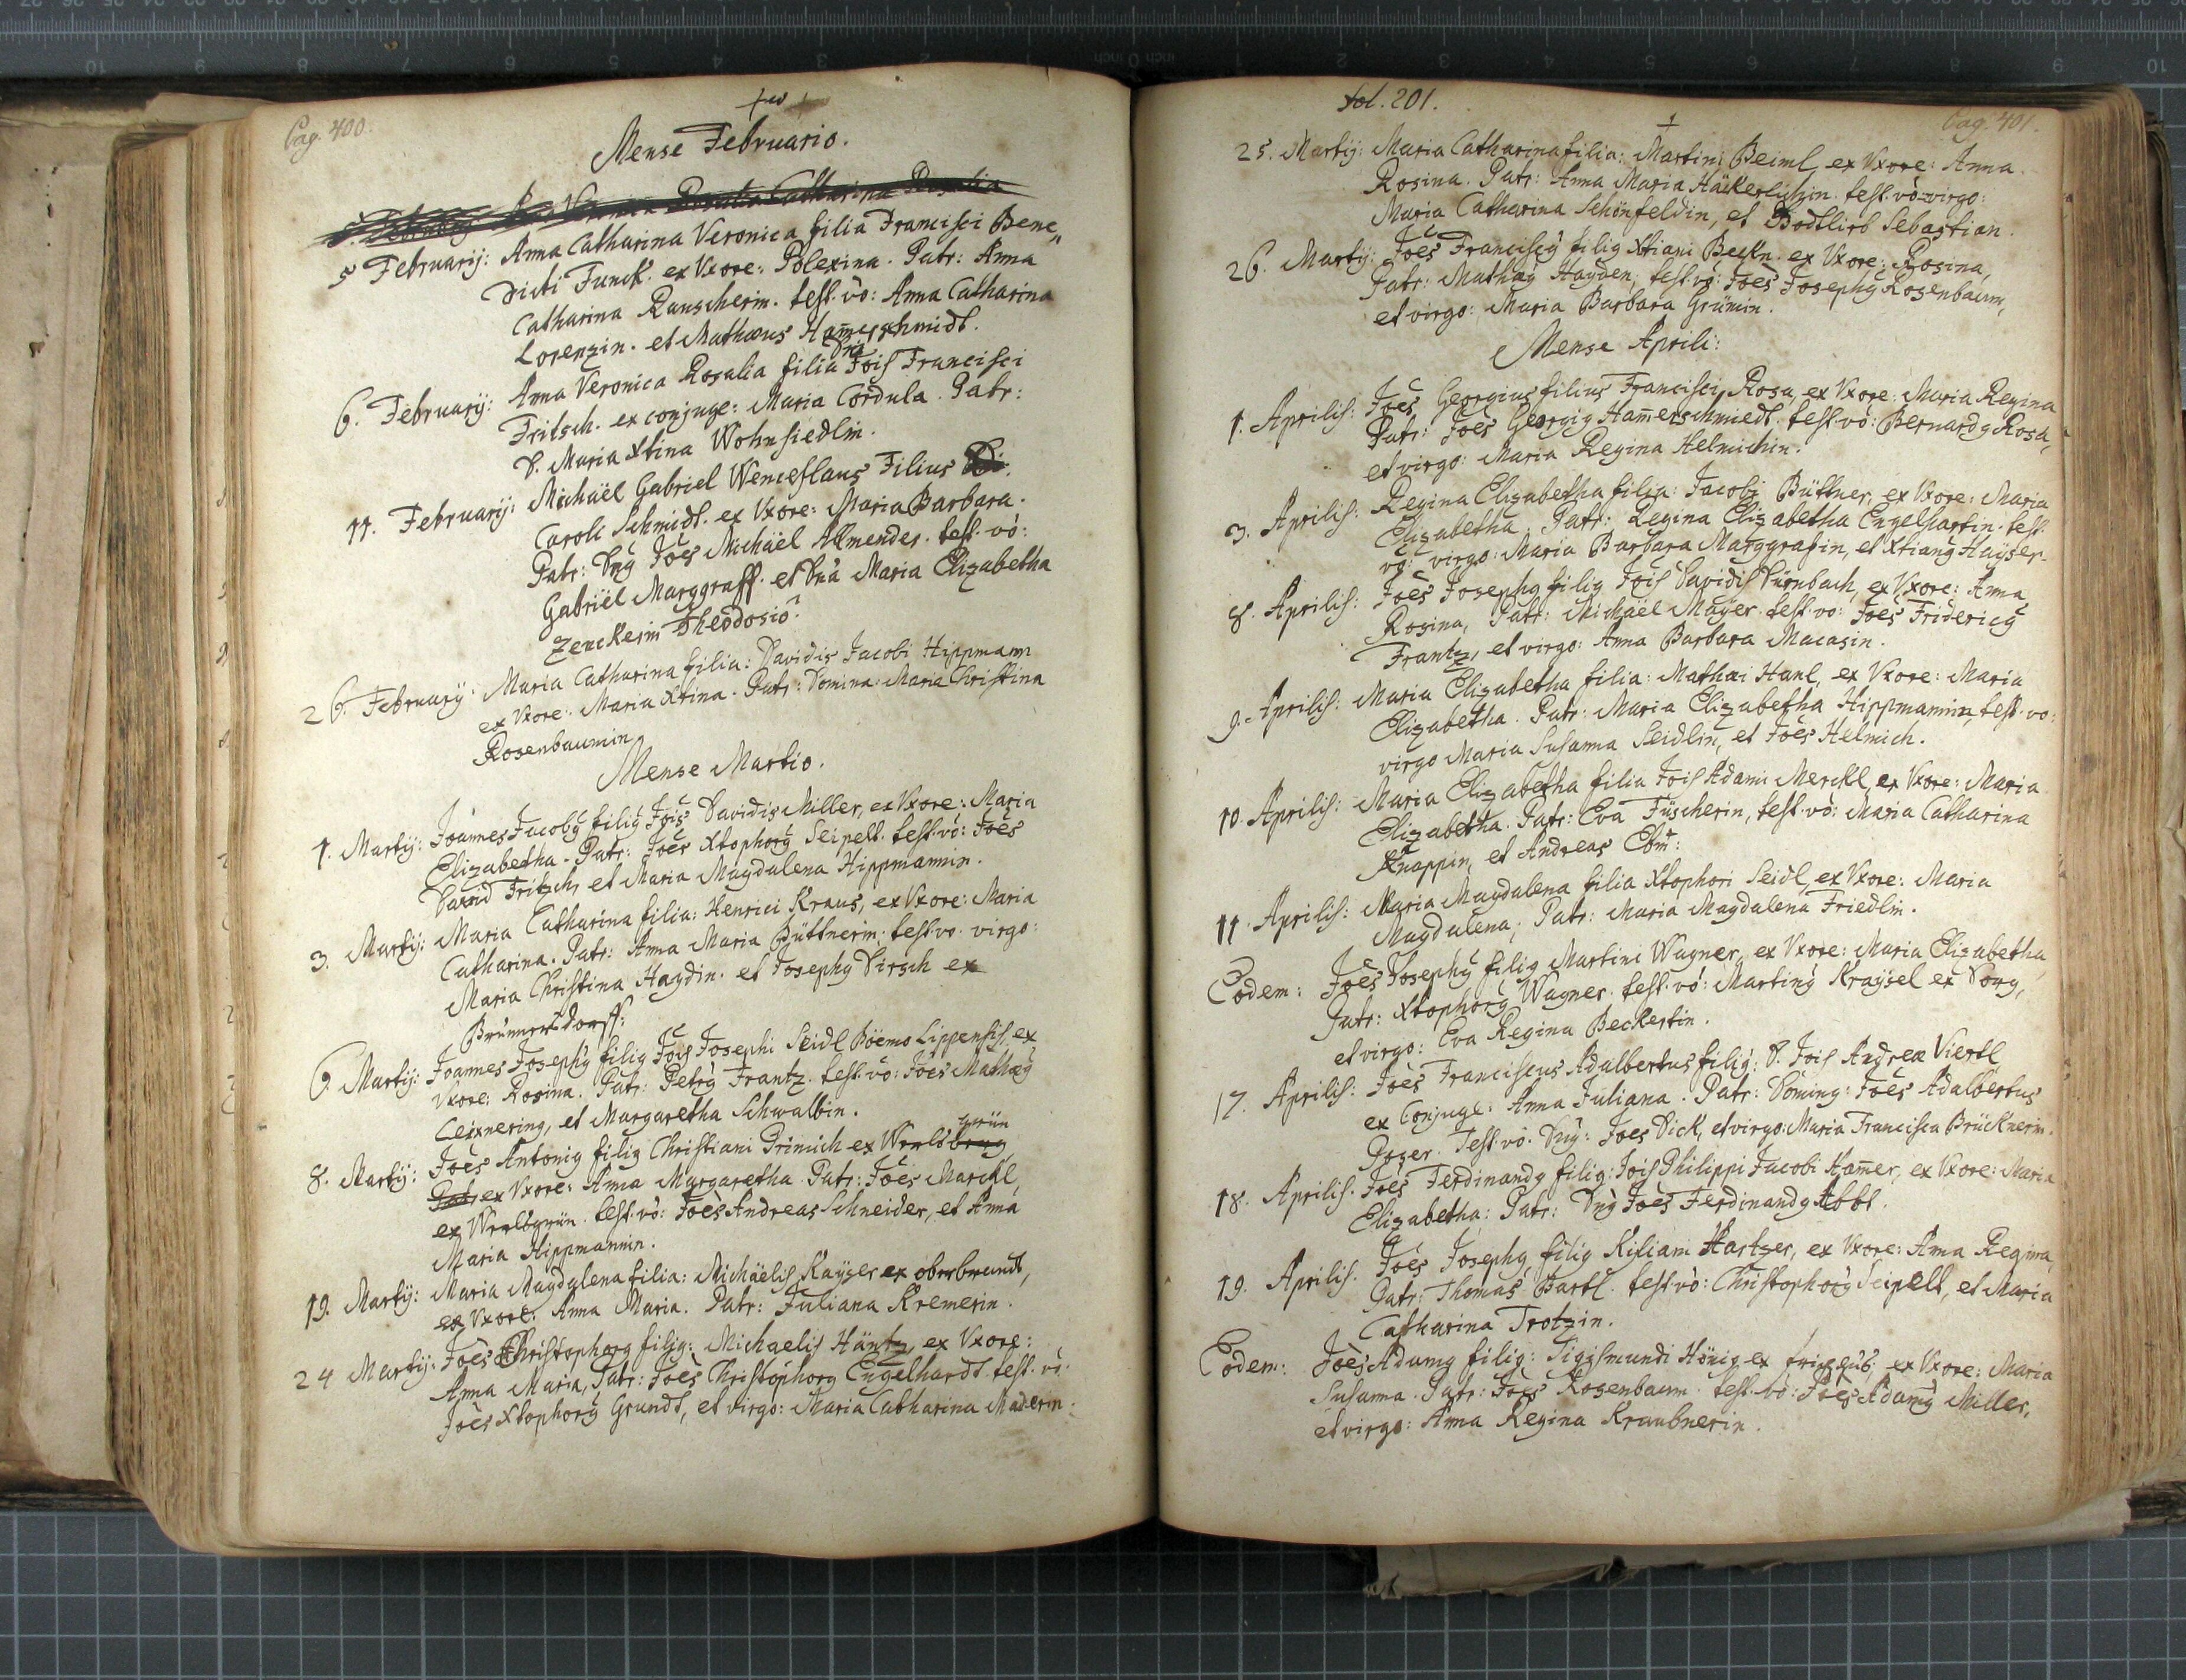 Pag. 400.
Mense Februario.
5 Februarij: Anna Catharina Veronica filia Francisci Bene„
dicti Funck. ex Uxore: Polexina. Patr: Anna
Catharina Rauscherin. test. vò: Anna Catharina
Lorenzin. et Mathæus Ham̄erschmidt.
6. Februarij: Anna Veronica Rosalia filia Jois Francisci
Fritsch. ex conjuge: Maria Cordula. Patr:
D. Maria Xtina Wohnsiedlin.
11. Februarij: Michaël Gabriel Wenceslaus Filius
Caroli Schmidt. ex Uxore: Maria Barbara.
Patr: Dnȳ Joes Michaël Allmender. test. vò:
Gabriël Marggraff. et Dnā Maria Elizabetha
Zenckerin Theodosiô?
26. Februarÿ: Maria Catharina filia: Davidis Jacobi Hippmann
ex Uxore: Maria Xtina. Patr: Domina: Maria Christina
Rosenbaumin.
Mense Martio.
1. Martij: Joannes Jacobȳ filiȳ Jois Davidis Miller, ex Uxore: Maria
Elizabetha. Patr: Joes Xtophorȳ Seipelt. test. vò: Joës
David Fritsch, et Maria Magdalena Hippmannin.
3. Martij: Maria Catharina filia: Henrici Kraus, ex Uxore: Maria
Catharina. Patr: Anna Maria Büttnerin. test. vo. virgo:
Maria Christina Haydin. et Josephȳ Dirsch ex
Brünnersdorff:
6. Martij: Joannes Josephȳ filiȳ Jois Josephi Seidl Böemo Lippensis, ex
Uxore: Rosina. Patr: Petrȳ Frantz. test. vò: Joes Mathæȳ
Leixnering, et Margaretha Schwalbin.
grün
8. Martij: Joës Antoniȳ filiȳ Christiani Primich ex
Pat, ex Uxore: Anna Margaretha. Patr: Joës Marckl,
ex test. vò: Joës Andreas Schneider, et Anna
Maria Hippmannin.
19. Martij: Maria Magdalena filia: Michäelis Kayser ex oberbrandt,
ex Uxore: Anna Maria. Patr: Juliana Kremerin.
24 Martij: Joës Christophorȳ filiȳ: Michaelis Häntz, ex Uxore:
Anna Maria, Patr: Joès Christophorȳ Engelhardt. test. vò.
Joès Xtophorȳ Grundt, et virgo: Maria Catharina Maderin.
fol. 201.
Pag. 401.
25. Martij: Maria Catharina filia: Martini Beiml, ex Uxore: Anna
Rosina. Patr: Anna Maria test. vò. virgo:
Maria Catharina Schönfeldin, et Sebastian.
26. Martij: Joës Franciscȳ filiȳ Xtiani Beckn. ex Uxore: Rosina,
Patr: Mathæȳ Hayden, test. vò: Joès Josephȳ Rosenbaum,
et virgo: Maria Barbara Grümin.
Mense Aprili:
1. Aprilis: Joës Georgius filius Francisci Rosa, ex Uxore: Maria Regina
Patr: Joes Georgiȳ Ham̄erschmiedt. test. vò: Bernardȳ Rosa,
et virgo: Maria Regina Helmichin.
3. Aprilis: Regina Elizabetha filia: Jacobi Büttner, ex Uxore: Maria
Elizabetha. Patr: Regina Elizabetha Engelhartin. test.
vo: virgo: Maria Barbara Marggrafin, et Xtianȳ Hayser.
8. Aprilis: Joès Josephȳ filiȳ Jois Davidis Dürnbach, ex Uxore: Anna
Rosina, Patr: Michäël Mayer. test. vo: Joës Fridericȳ
Frantz, et virgo: Anna Barbara Macasin.
9. Aprilis: Maria Elizabetha filia: Mathæi Hanl, ex Uxore: Maria
Elizabetha. Patr: Maria Elizabetha Hippmannin, test. vo:
virgo Maria Susanna Seidlin, et Joës Helmich.
10. Aprilis: Maria Elizabetha filia Jois Adami Merckl, ex Uxore: Maria
Elizabetha. Patr: Eva Füscherin, test. vò: Maria Catharina
Knappin, et Andreas
11. Aprilis: Maria Magdalena filia Xtophori Seidl, ex Uxore: Maria
Magdalena; Patr: Maria Magdalena Friedlin.
Eodem: Joës Josephȳ filiȳ Martini Wagner, ex Uxore: Maria Elizabetha,
Patr: Xtophorȳ Wagner. test. vò: Martinȳ Kraysel ex Dorg,
et virgo: Eva Regina Beckertin.
17. Aprilis: Joès Franciscus Adalbertus filiȳ: D. Jois Andreæ Viertl
ex Conjuge: Anna Juliana. Patr: Dominȳ: Joës Adalbertus
Poser. Test. vò. Dnȳ: Joes Dick, et virgo: Maria Francisca Brücknerin.
18. Aprilis. Joës Ferdinandȳ filiȳ: Jois Philippi Jacobi Ham̄er, ex Uxore: Maria
Elizabetha: Patr: Dnȳ Joès Ferdinandȳ Abbt.
19. Aprilis. Joës Josephȳ filiȳ Kiliani Hartzer, ex Uxore: Anna Regina,
Patr: Thomas Bartl. test. vò: Christophorȳ Seipelt, et Maria
Catharina Trotzin.
Eodem: Joës Adamȳ filiȳ: Sigismundi Hönig ex ex Uxore: Maria
Susanna. Patr: Joès Rosenbaum. test. vò: Joès Adamȳ Miller,
et virgo: Anna Regina Kraubnerin.